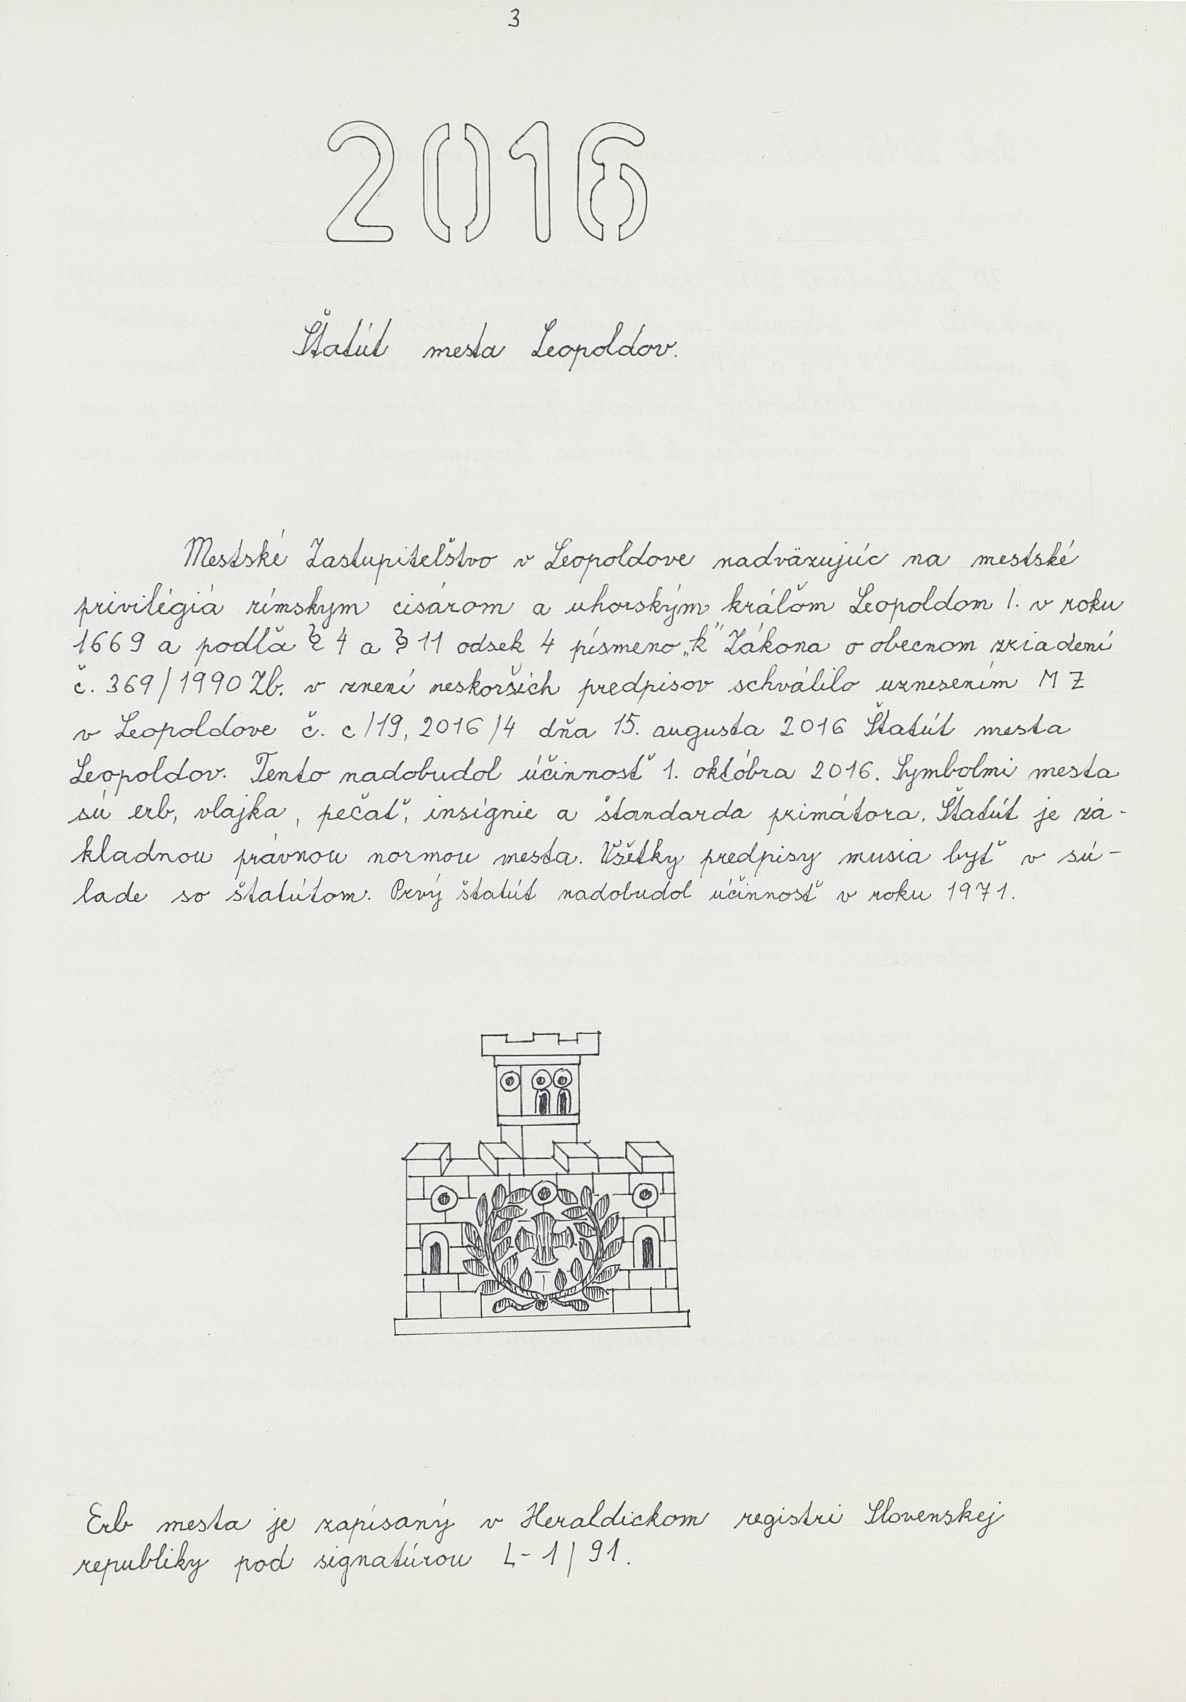 3
2016
Štatút mesta Leopoldov.
Mestské Zastupiteľstvo v Leopoldove nadväzujúc na mestské
privilégiá rímskym cisárom a uhorským kráľom Leopoldom I. v roku
1669 a podľa § 4 a § 11 odsek 4 písmeno „k" Zákona o obecnom zriadení
č. 369/1990 Zb. v znení neskorších predpisov schválilo uznesením MZ
v Leopoldove č. c/19, 2016/4 dňa 15. augusta 2016 Štatút mesta
Leopoldov. Tento nadobudol účinnosť 1. októbra 2016. Symbolmi mesta
sú erb, vlajka, pečať, insígnie a štandarda primátora. Štatút je zá-
kladnou právnou normou mesta. Všetky predpisy musia byť v sú-
lade so štatútom. Prvý štatút nadobudol účinnosť v roku 1971.
Erb mesta je zapísaný v Heraldickom registri Slovenskej
republiky pod signatúrou L-1/91.